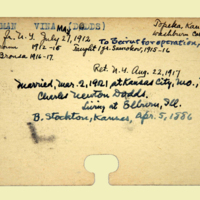 MAN VINA MAY (DODDS)
Topeka, Kan
Washburn Co
fr. N.Y. July 27, 1912 To Beirut for operation,
1912-15 Taught for 1915-16
Brousa 1916-17.
Ret. N.Y. Aug. 22, 1917
Married, Mar. 2, 1921 at Kansas City, Mo.,
Charles Newton Dodds.
Living at Elburn, Ill.
B. Stockton, Kansas, Apr. 5, 1886